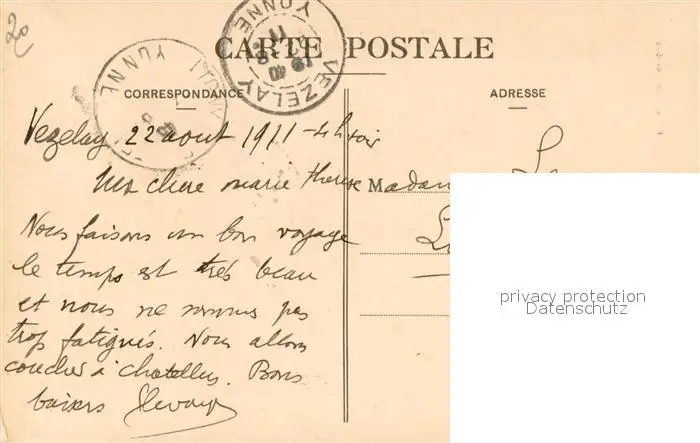 20
CARTE POSTALE
VEZELAY
YONNE
YONNE
CORRESPONDANCE
ADRESSE
Vezelay 22 aout 1911 - 4 h soir
Ma chère marie Therese
Nous faisons un bon voyage
le temps est très beau
et nous ne sommes pas
trop fatigués. Nous allons
coucher à Chatellus. Bons
baisers
Madam
privacy protection
Datenschutz